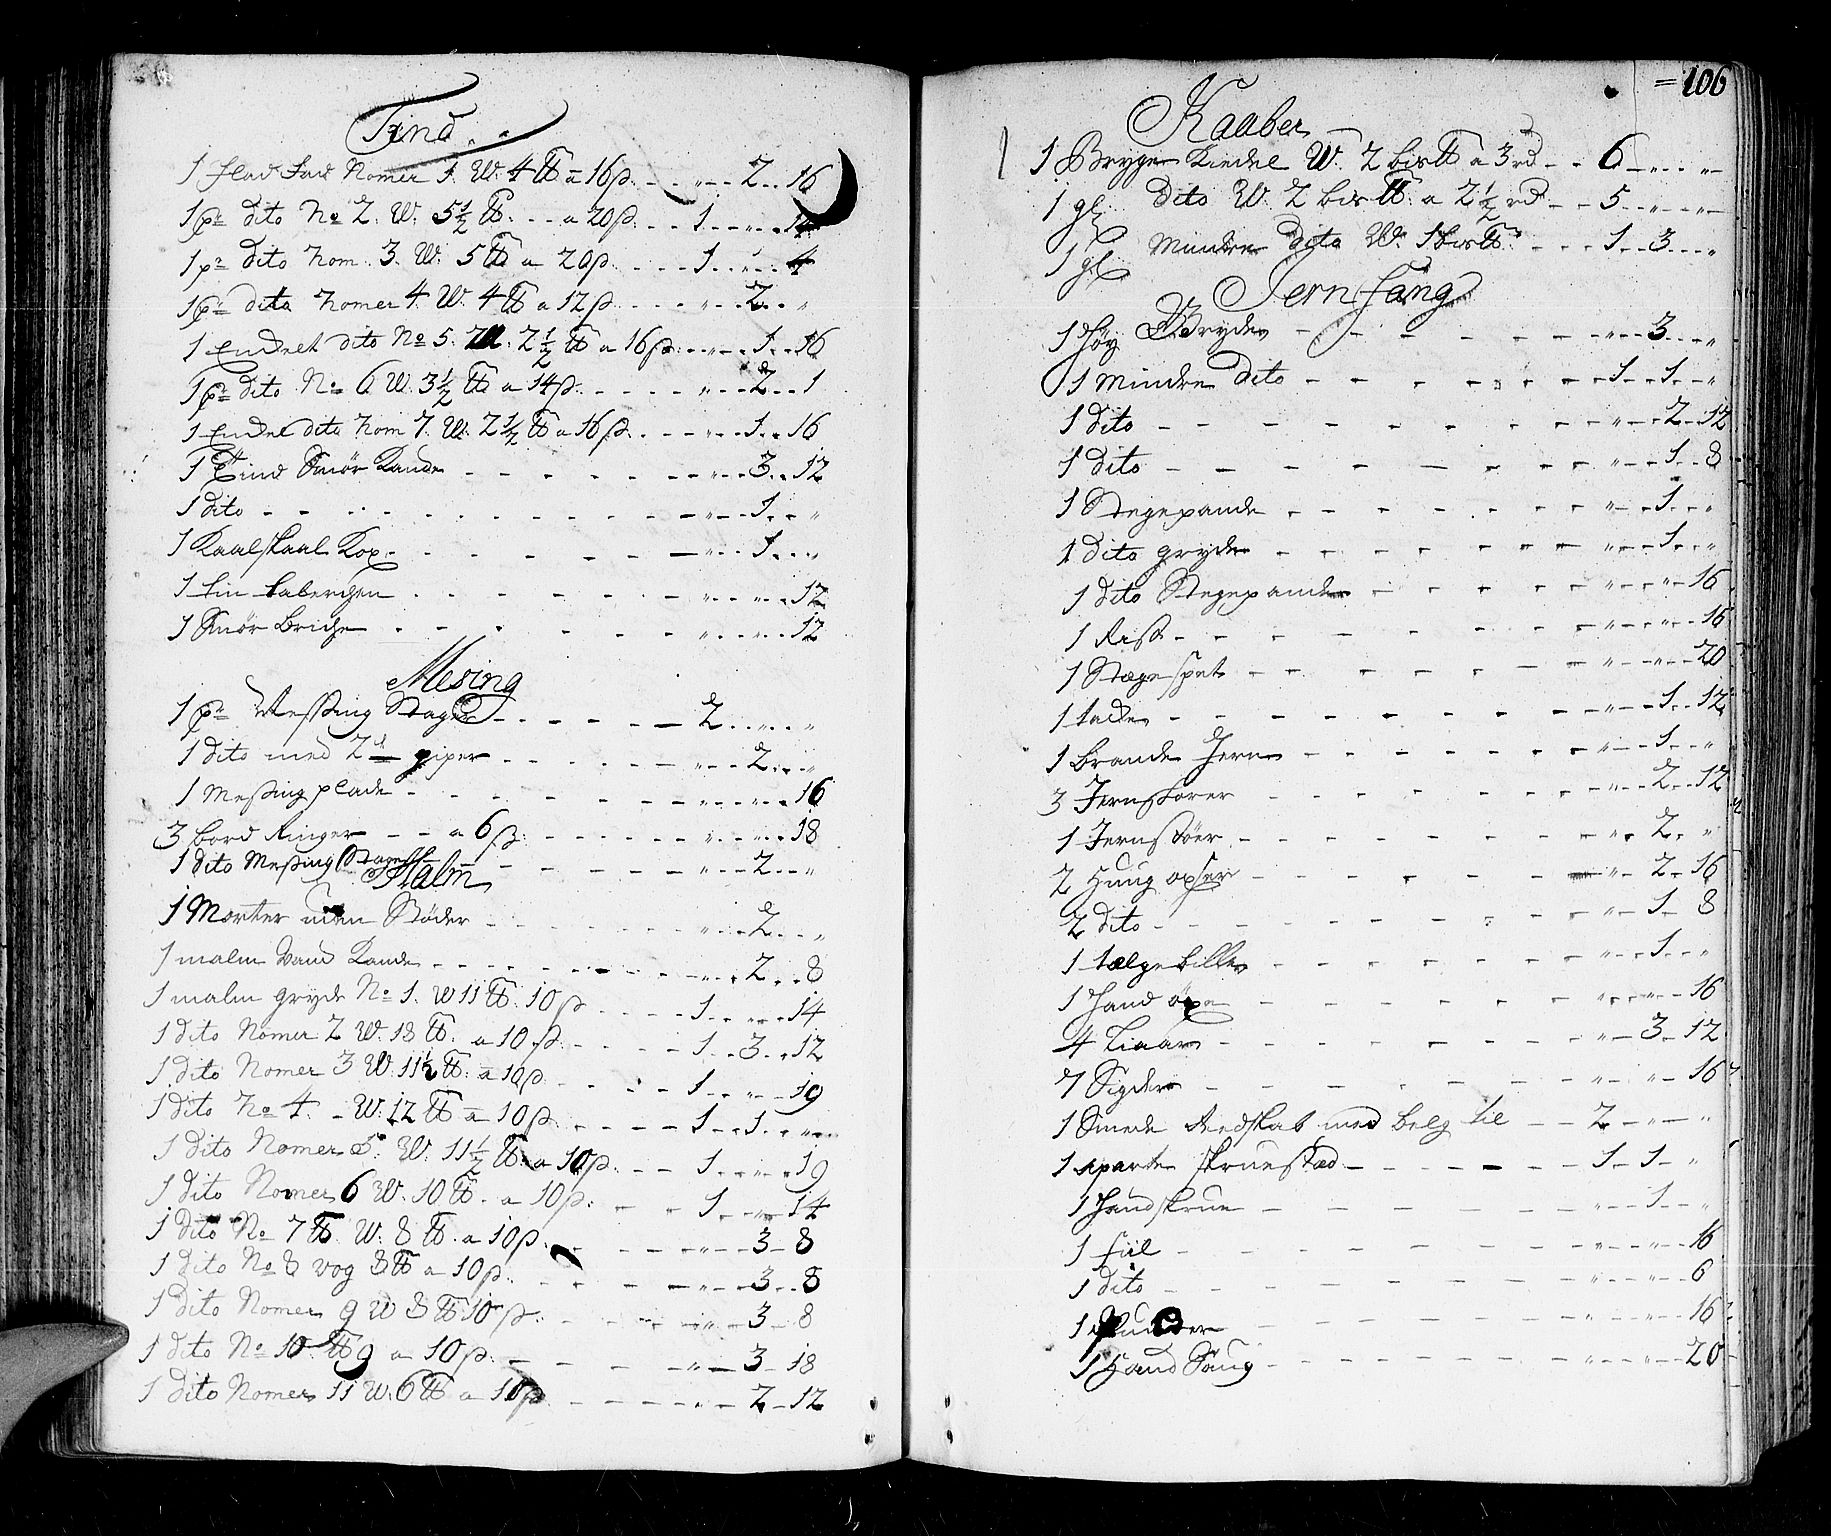 Tind
1 flad Fad Nomer 1. W. 4 ℔ a 16 ß. - - „ - - 2 - - 16
1 p: dito No 2. W. 5½ ℔. - - a 20 ß. - - 1 - - „ - - 14
1 p: dito Nom. 3. W. 5 ℔ a 20 ß. - - - 1 - - „ - - 4
1 p: dito Nomer 4. W. 4 ℔ a 12 ß. - - - „ - - 2 - - „
1 Enckelt dito No 5. W. 2½ ℔ a 16 ß. - - „ - - 1 - - 16
1 p: dito No 6 W. 3½ ℔ a 14 ß. - - - „ - - 2 - - 1
1 Enckel dito Nom 7. W. 2½ ℔ a 16 ß. - - - „ - - 1 - - 16
1 Tind Smør Kande - - - - „ - - 3 - - 12
1 dito - - - - - „ - - 1 - - „
1 Kaalskaal Kop - - - - „ - - 1 - - „
1 tin taberchen - - - - „ - - „ - - 12
1 Smør Briche - - - - „ - - „ - - 12
Mesing
1 p: Messing Stager - - - - 2 - - „ - - „
1 dito med 2de piper - - - - „ - - 2 - - „
1 Messing plade - - - - „ - - „ - - 16
3 bord Ringer - - a 6 ß. - - - „ - - „ - - 18
1 dito Messing Stage - - - - „ - - 2 - - „
Malm
1 Morter uden Støder - - - - „ - - 2 - - „
1 malm Vand Kande - - - - „ - - 2 - - 8
1 malm gryde No 1. W 11 ℔. 10 ß - - - 1 - - „ - - 14
1 dito Nomer 2 W. 18 ℔. a 10 ß. - - - 1 - - 3 - - 12
1 dito Nomer 3 W. 11½ ℔. a 10 ß. - - - 1 - - „ - - 19
1 dito No 4. - W. 12 ℔ a 10 ß. - - - 1 - - 1 - - „
1 dito Nomer 5. W. 11½ ℔. a 10 ß. - - 1 - - „ - - 19
1 dito Nomer 6 W. 10 ℔. a 10 ß. - - 1 - - „ - - 14
1 dito No 7 ℔. W. 8 ℔. a 10 ß. - - - „ - - 3 - 8
1 dito No 8 vog 8 ℔ a 10 ß. - - - „ - - 3 - - 8
1 dito Nomer 9 W 8 ℔ 10 ß. - - - „ - - 3 - 8
1 dito No 10. ℔ 9 a 10 ß. - - - „ - - 3 - 18
1 dito Nomer 11 W. 6 ℔ a 10 ß - - - „ - - 2 - 12
= 106
Kaaber
1 Brygge Kiedel W. 2 bis℔ a 3 rd - - 6 - „ - - „
1 gl. dito W. 2 bis℔. a 2½ rd - - 5 - - „ - - „
1 gl. Mindre dito W. 1 bis℔. - - - 1 - - 3 - - „
Jernfang
1 høy Gryde - - - - „ - - 3 - - „
1 Mindre dito - - - - 1 - - 1 - - „
1 dito - - - - „ - - 2 - 12
1 dito - - - - „ - - 1 - - 8
1 Stegepande - - - - „ - - 1 - - „
1 dito gryde - - - - „ - - 1 - - „
1 dito Stegepande - - - - „ - - „ - 16
1 Rist - - - - „ - - „ - - 16
1 Stegespet - - - - „ - - „ - - 20
1 tache - - - - „ - - 1 - - 12
1 brande Jern - - - - „ - - 1 - - „
3 Jernstører - - - - 2 - - 12
1 Jernstøer - - - - „ - 2 - „
2 Huug øxser - - - - „ - 2 - 16
2 dito - - - - „ - 1 - 8
1 tælgebille - - - - „ - 1 - - „
1 Hand øxe - - - - „ - - „ - 16
4 Liaar - - - - „ - - 3 - 12
7 Sigder - - - - „ - - „ - 16
1 Smede Redskab med belg til - - 2 - „ - - „
1 aparte skruestæd - - - - 1 - 1 - „
1 Handskrue - - - - „ - 1 - „
1 fiil - - - - „ - - „ - 16
1 dito - - - - „ - - „ - 6
1 - - - - „ - - „ - 16
1 Haand Saug - - - - „ - - „ - 20